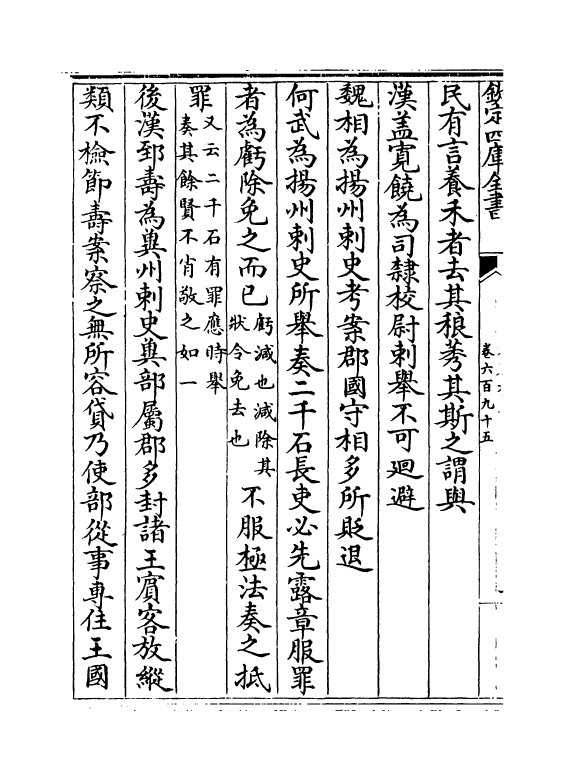 欽定四庫全書
卷六百九十五
民有言養禾者去其稂莠其斯之謂與
漢蓋寛饒為司隸校尉刺舉不可廻避
魏相為揚州刺史考案郡國守相多所貶退
何武為揚州刺史所舉奏二千石長吏必先露章服罪
者為虧除免之而已虧減也減除其狀令免去也不服極法奏之抵
罪又云二千石有罪應時舉奏其餘賢不肖敬之如一
後漢郅壽為兾州刺史兾部屬郡多封諸王賔客放縱
類不檢節壽案察之無所容貸乃使部從事専住王國